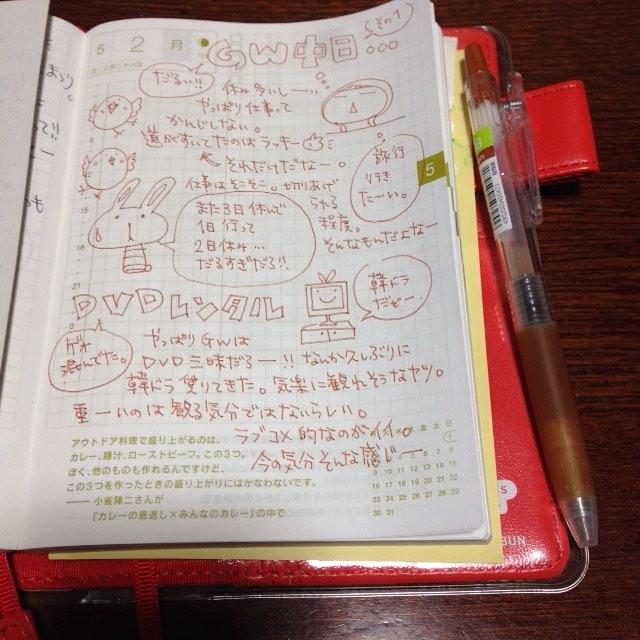 5 2 月
GW中日...
その1
だるい!!
休み多いし一…
やっぱり仕事って
かんじしない。
道がすいてたのはラッキー
それだけだなー。
仕事はそこそこ。切りあげ
られる
程度。
そんなもんだよなー
旅行
行き
たーい。
また3日休んで
1日行って
2日休み…
だるすぎだろ!!
5
DVDレンタル
韓ドラ
だぜー
ゲオ
混んでた。
やっぱりGWは
DVD三昧だろー!!なんか久しぶりに
韓ドラ借りてきた。気楽に観れそうなヤツ。
重ーいのは観る気分ではないらしい。
ラブコメ的なのがイイ。
今の気分そんな感じー
アウトドア料理で盛り上がるのは、
カレー、豚汁、ローストビーフ。この3つ。
ぼく、他のものも作れるんですけど、
この3つを作ったときの盛り上がりにはかなわないです。
——小雀陣二さんが
『カレーの恩返し×みんなのカレー』の中で
土 日
1
8
9 10 11 12 13 14 15
16 17 18 19 20 21 22
23 24 25 26 27 28 29
30 31
BUN